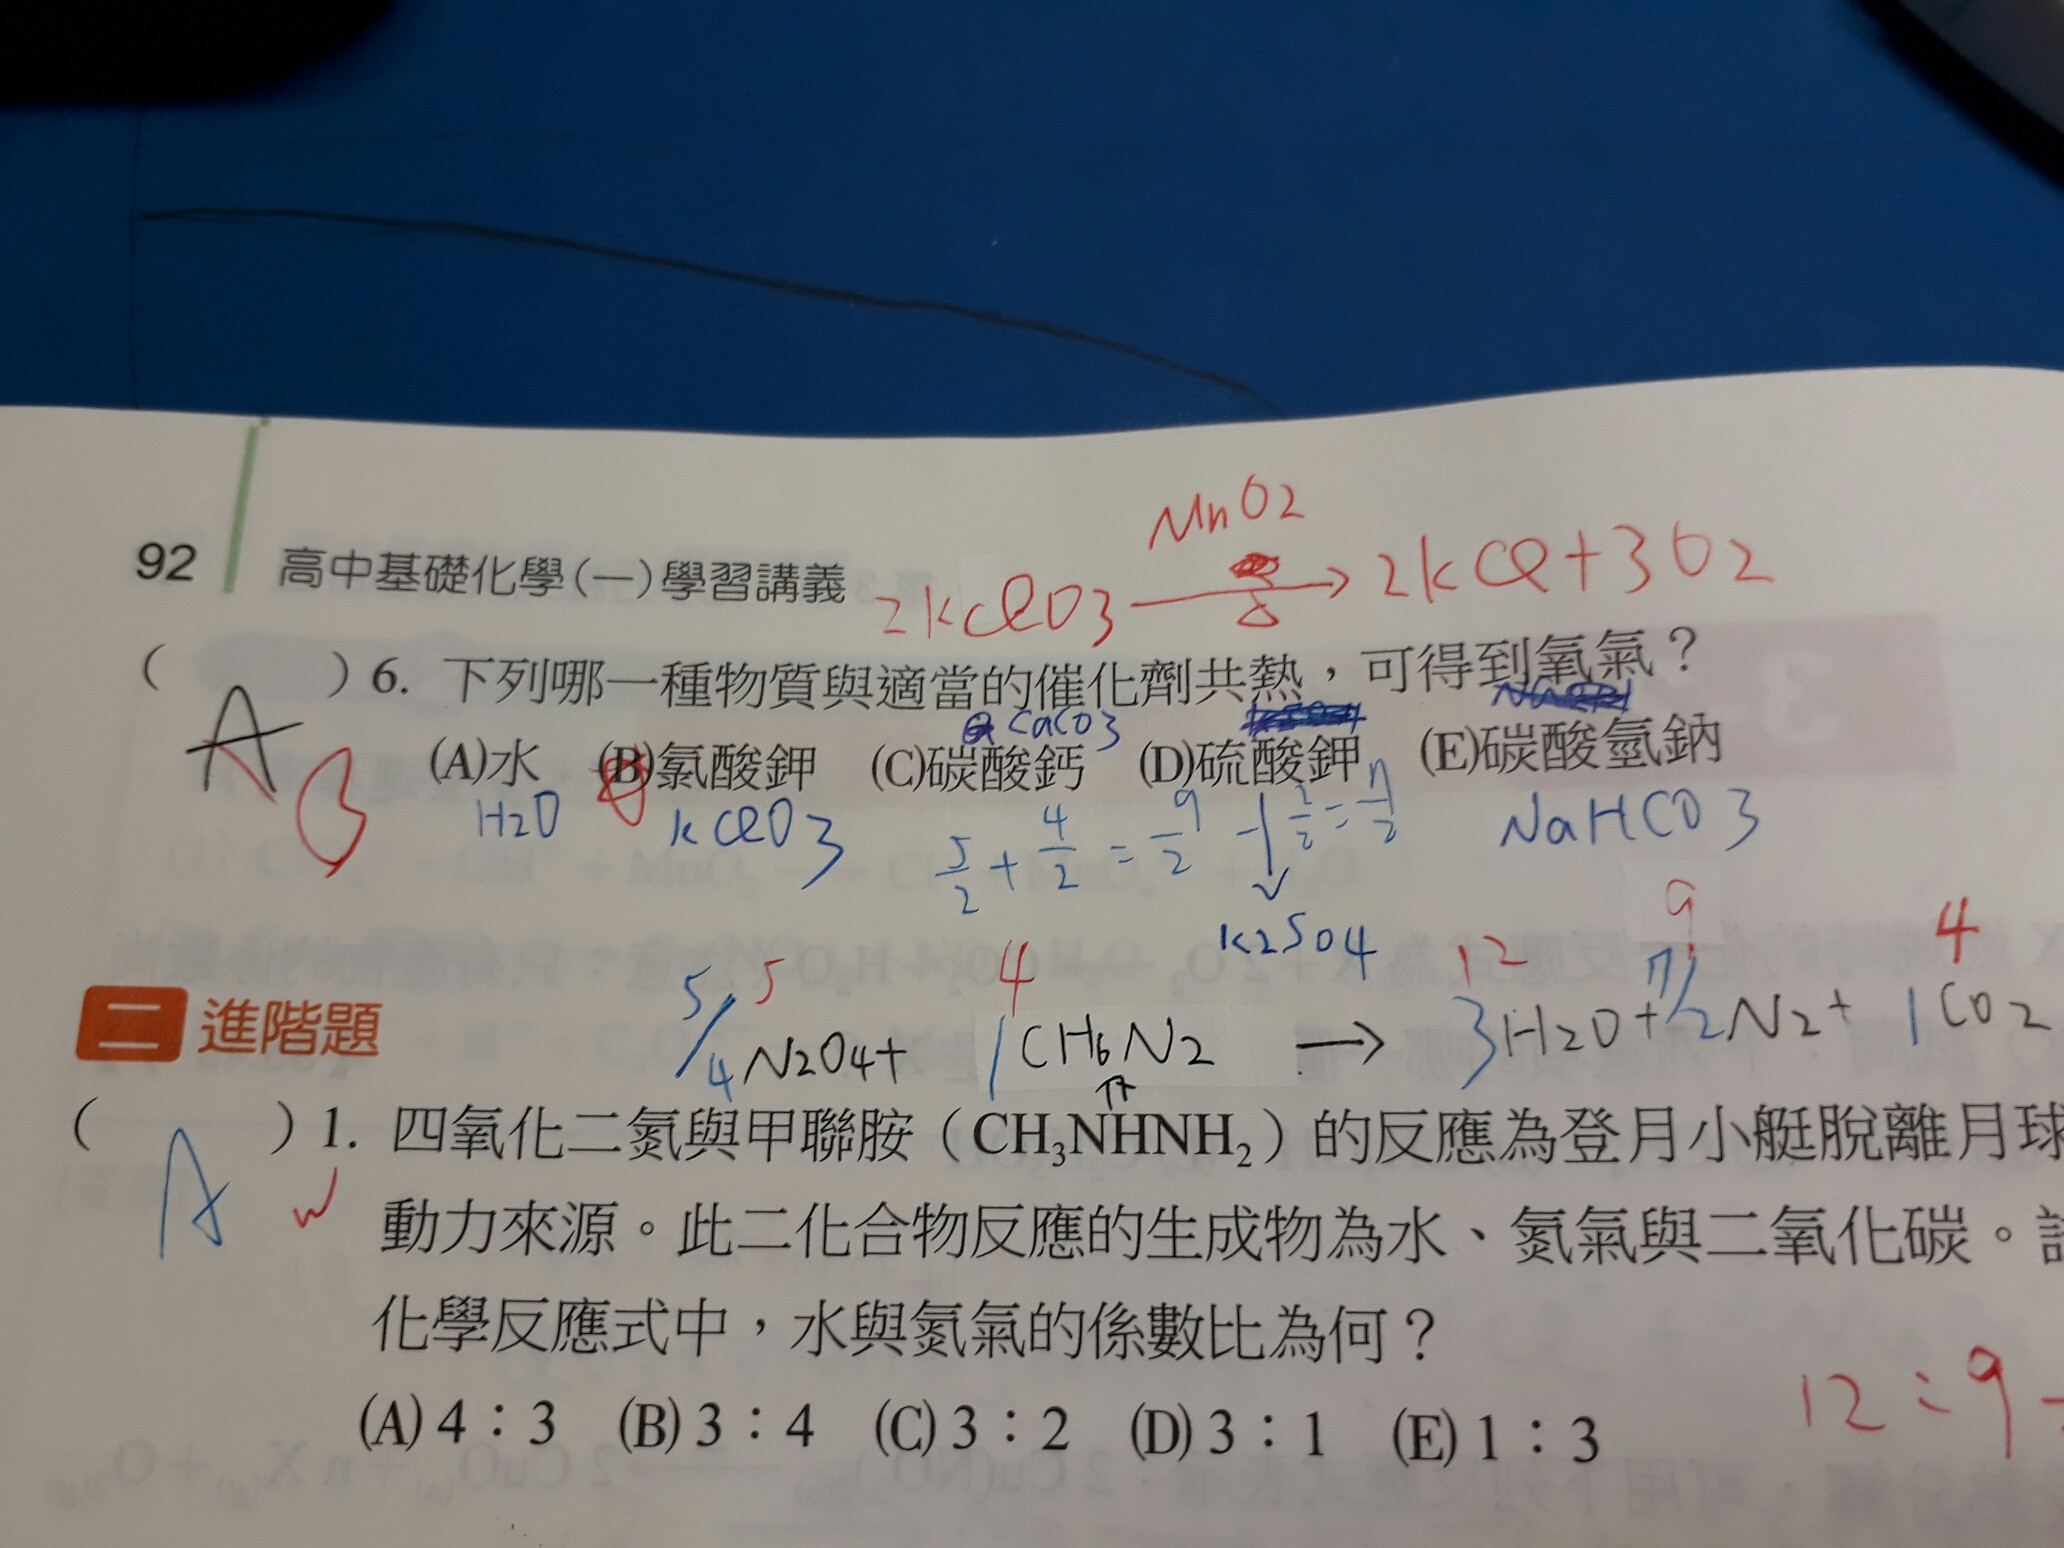 MnO2
92 高中基礎化學(一)學習講義 2KClO3 → 2KCl+3O2
Δ
( )6. 下列哪一種物質與適當的催化劑共熱，可得到氧氣？
A B
CaCO3
(A)水 (B)氯酸鉀 (C)碳酸鈣 (D)硫酸鉀 (E)碳酸氫鈉
H2O KClO3 5/2 + 4/2 = 9/2 NaHCO3
K2SO4
5 4 12 9 4
二 進階題 5/4 N2O4+ 1 CH6N2 → 3H2O+ N2+ 1 CO2
( )1. 四氧化二氮與甲聯胺（CH3NHNH2）的反應為登月小艇脫離月球
A
動力來源。此二化合物反應的生成物為水、氮氣與二氧化碳。
化學反應式中，水與氮氣的係數比為何？
12:9
(A) 4：3 (B) 3：4 (C) 3：2 (D) 3：1 (E) 1：3